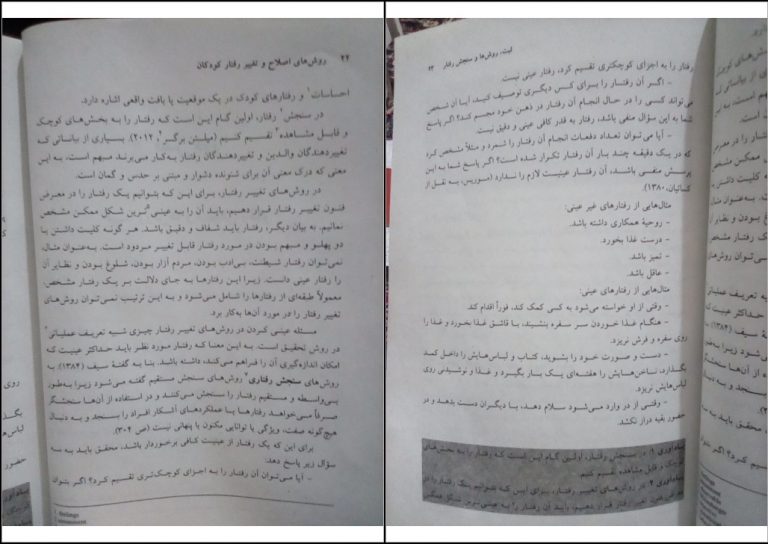 ۲۲ روش‌های اصلاح و تغییر رفتار کودکان
احساسات۱ و رفتارهای کودک در یک موقعیت یا بافت واقعی اشاره دارد.
در سنجش۲ رفتار، اولین گام این است که رفتار را به بخش‌های کوچک
و قابل مشاهده۳ تقسیم کنیم (میلتن برگر۴، ۲۰۱۲). بسیاری از بیاناتی که
تغییردهندگان والدین و تغییردهندگان رفتار به‌کار می‌برند مبهم است، به این
معنی که درک معنی آن برای شنونده دشوار و مبتنی بر حدس و گمان است.
در روش‌های تغییر رفتار، برای این که بتوانیم یک رفتار را در معرض
فنون تغییر رفتار قرار دهیم، باید آن را به عینی‌ترین شکل ممکن مشخص
نمائیم. به بیان دیگر، رفتار باید شفاف و دقیق باشد. هر گونه کلیت داشتن یا
دو پهلو و مبهم بودن در مورد رفتار قابل تغییر مردود است. به‌عنوان مثال،
نمی‌توان رفتار شیطنت، بی‌ادب بودن، مردم آزار بودن، شلوغ بودن و نظایر آن
را رفتار عینی دانست. زیرا این رفتارها به جای دلالت بر یک رفتار مشخص،
معمولاً طبقه‌ای از رفتارها را شامل می‌شود و به این ترتیب نمی‌توان روش‌های
تغییر رفتار را در مورد آن‌ها به‌کار برد.
مسئله عینی کردن در روش‌های تغییر رفتار چیزی شبیه تعریف عملیاتی
در روش تحقیق است. به این معنا که رفتار مورد نظر باید حداکثر عینیت که
امکان اندازه‌گیری آن را فراهم می‌کند، داشته باشد. بنا به گفتهٔ سیف (۱۳۸۴)
روش‌های سنجش رفتاری روش‌های سنجش مستقیم گفته می‌شود زیرا به‌طور
بی‌واسطه و مستقیم رفتار را سنجش می‌کنند و در استفاده از آن‌ها سنجشگر
صرفاً می‌خواهد رفتارها یا عملکردهای آشکار افراد را بسنجد و به دنبال
هیچ‌گونه صفت، ویژگی یا توانایی مکنون یا پنهانی نیست (ص ۳۰۴).
برای این که یک رفتار از عینیت کافی برخوردار باشد، محقق باید به سه
سؤال زیر پاسخ دهد.
- آیا می‌توان آن رفتار را به اجزای کوچک‌تری تقسیم کرد؟ اگر بتوان
feelings
ثبت، روش‌ها و سنجش رفتار ۲۳
رفتار را به اجزای کوچکتری تقسیم کرد، رفتار عینی نیست.
- اگر آن رفتار را برای کس دیگری توصیف کنید، آیا آن شخص
می‌تواند کسی را در حال انجام آن رفتار در ذهن خود مجسم کند؟ اگر پاسخ
شما به این سؤال منفی باشد، رفتار به قدر کافی عینی و دقیق نیست.
- آیا می‌توان تعداد دفعات انجام آن رفتار را شمرد و مثلاً مشخص کرد
که در یک دقیقه چند بار آن رفتار تکرار شده است؟ اگر پاسخ شما به این
پرسش منفی باشد، آن رفتار عینیت لازم را ندارد (موریس، به نقل از
کمائیان، ۱۳۸۰).
مثال‌هایی از رفتارهای غیر عینی:
- روحیهٔ همکاری داشته باشد.
- درست غذا بخورد.
- تمیز باشد.
- عاقل باشد.
مثال‌هایی از رفتارهای عینی:
- وقتی از او خواسته می‌شود به کسی کمک کند، فوراً اقدام کند.
- هنگام غذا خوردن سر سفره بنشیند، با قاشق غذا بخورد و غذا را
روی سفره و فرش نریزد.
- دست و صورت خود را بشوید، کتاب و لباس‌هایش را داخل کمد
بگذارد، ناخن‌هایش را هفته‌ای یک بار بگیرد و غذا و نوشیدنی روی
لباس‌هایش نریزد.
- وقتی از در وارد می‌شود سلام دهد، با دیگران دست بدهد و در
حضور بقیه دراز نکشد.
یادآوری ۱: در سنجش رفتار، اولین گام این است که رفتار را به بخش‌های
کوچک و قابل مشاهده تقسیم کنیم.
یادآوری ۲: در روش‌های تغییر رفتار، برای این که بتوانیم یک رفتار را در
رفتار قرار دهیم، باید آن را به عینی‌ترین شکل ممکن